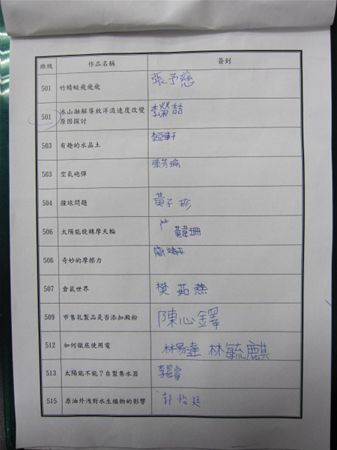 班級 作品名稱 簽到
501 竹蜻蜓飛飛飛 張予慈
501 冰山融解導致洋流速度改變
原因探討
503 有趣的水晶土
503 空氣砲彈
504 撞球問題
506 太陽能旋轉摩天輪 黃葦珊
506 奇妙的摩擦力
507 倉氣世界 樊茹燕
509 市售乳製品是否添加澱粉 陳心鐸
512 如何徹底使用電 林易達 林毓麒
513 太陽能不能?自製集水器
515 原油外洩對水生植物的影響 郭怡廷